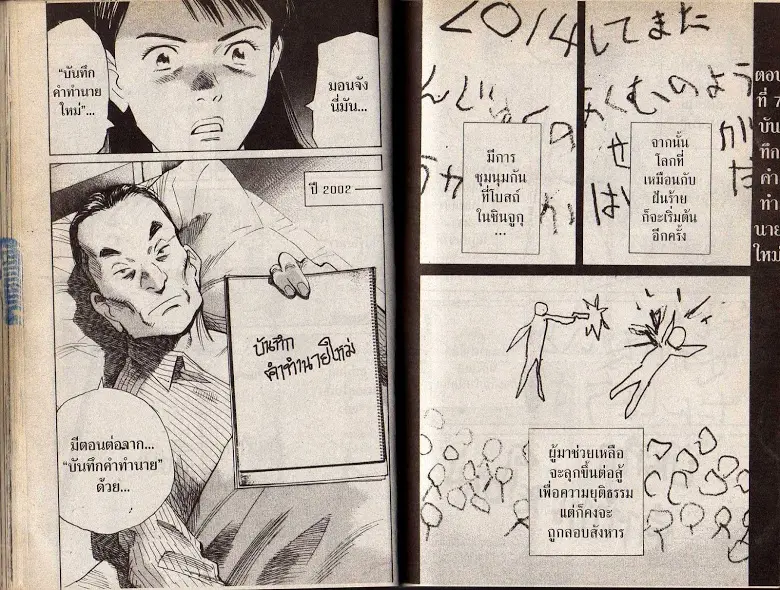 มอนจัง
นี่มัน...
"บันทึก
คำทำนาย
ใหม่"...
ปี 2002
บันทึก
คำทำนายใหม่
มีตอนต่อจาก...
"บันทึกคำทำนาย"
ด้วย...
2014
มีการ
ชุมนุมกัน
ที่โบสถ์
ในชินจูกุ
...
してまた
あくむのよう
せ
が
จากนั้น
โลกที่
เหมือนกับ
ฝันร้าย
ก็จะเริ่มต้น
อีกครั้ง
ผู้มาช่วยเหลือ
จะลุกขึ้นต่อสู้
เพื่อความยุติธรรม
แต่ก็คงจะ
ถูกลอบสังหาร
ตอน
ที่ 7
บัน
ทึก
คำ
ทำ
นาย
ใหม่